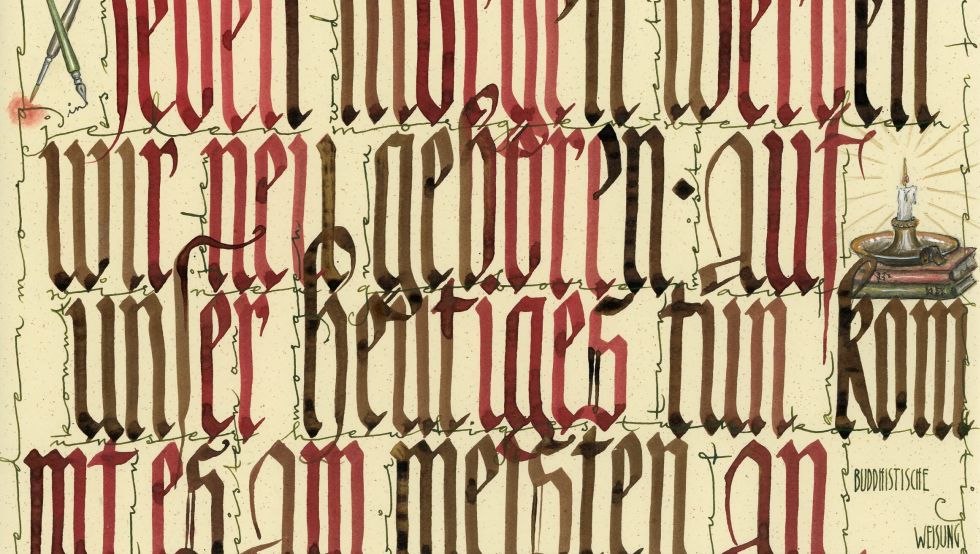 jeden morgen werden
wir neu geboren · auf
unser heutiges tun kom
mt es am meisten an
BUDDHISTISCHE
WEISUNG